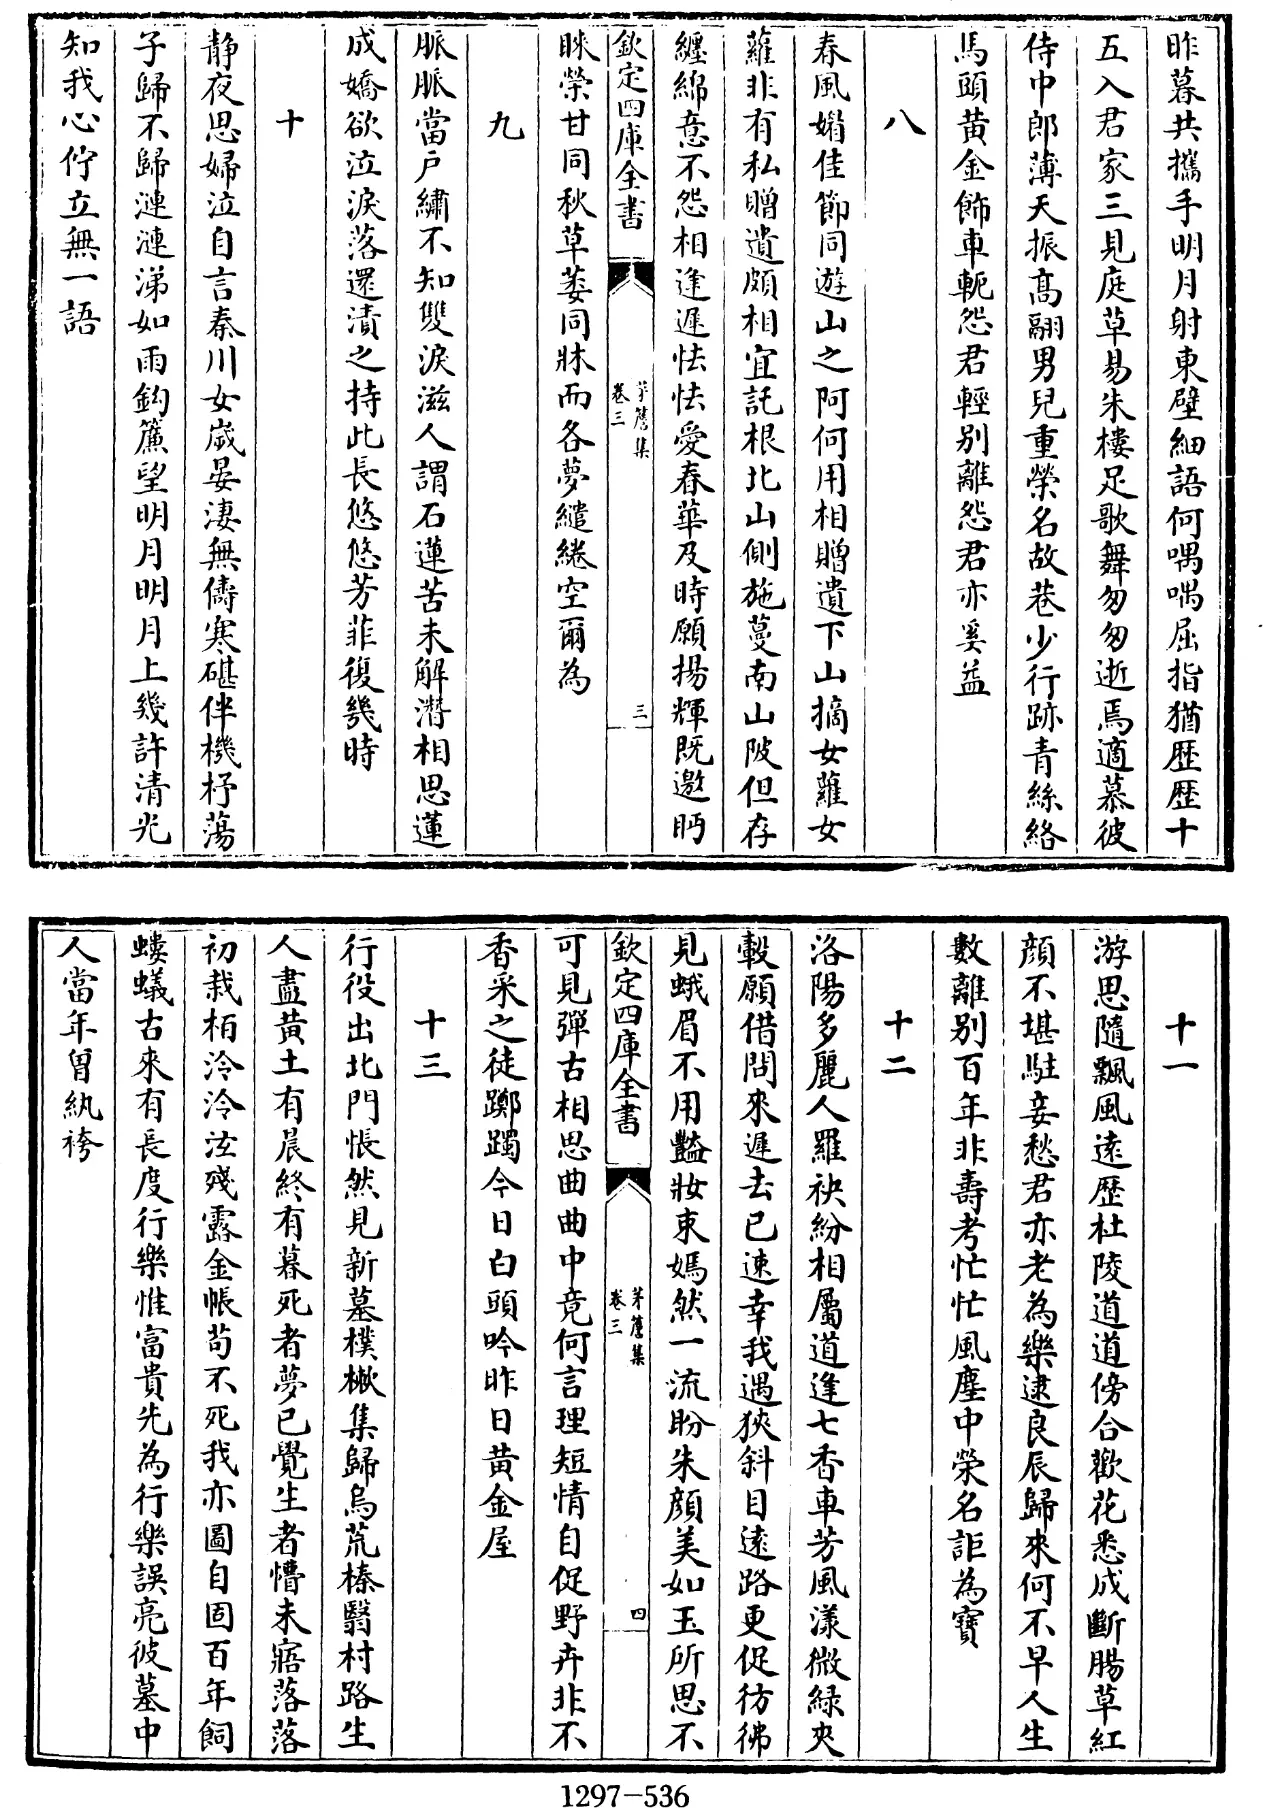 昨暮共攜手明月射東壁細語何喁喁屈指猶歴歴十
五入君家三見庭草易朱樓足歌舞匆匆逝焉適慕彼
侍中郎薄天振髙翮男兒重榮名故巷少行跡青絲絡
馬頭黄金飾車軛怨君輕别離怨君亦奚益
八
春風媚佳節同遊山之阿何用相贈遺下山摘女蘿女
蘿非有私贈遺頗相宜託根北山側施蔓南山陂但存
纏綿意不怨相逢遲怯怯愛春華及時願揚輝既邀眄
欽定四庫全書
茅簷集
卷三
三
睞榮甘同秋草萎同牀而各夢繾綣空爾為
九
脈脈當户繡不知雙淚滋人謂石蓮苦未解潛相思蓮
成嬌欲泣淚落還漬之持此長悠悠芳菲復幾時
十
静夜思婦泣自言秦川女歲晏淒無儔寒碪伴機杼蕩
子歸不歸漣漣涕如雨鈎簾望明月明月上幾許清光
知我心佇立無一語
十一
游思隨飄風逺歴杜陵道道傍合歡花悉成斷腸草紅
顔不堪駐妾愁君亦老為樂逮良辰歸來何不早人生
數離别百年非壽考忙忙風塵中榮名詎為寶
十二
洛陽多麗人羅袂紛相屬道逢七香車芳風漾微緑夾
轂願借問來遲去已速幸我遇狹斜目逺路更促彷彿
見蛾眉不用豔妝束嫣然一流盼朱顔美如玉所思不
欽定四庫全書
茅簷集
卷三
四
可見彈古相思曲曲中竟何言理短情自促野卉非不
香采之徒躑躅今日白頭吟昨日黄金屋
十三
行役出北門悵然見新墓樸樕集歸烏荒榛翳村路生
人盡黄土有晨終有暮死者夢已覺生者懵未寤落落
初栽栢泠泠泫殘露金帳苟不死我亦圖自固百年飼
螻蟻古來有長度行樂惟富貴先為行樂誤亮彼墓中
人當年曾紈袴
1297-536